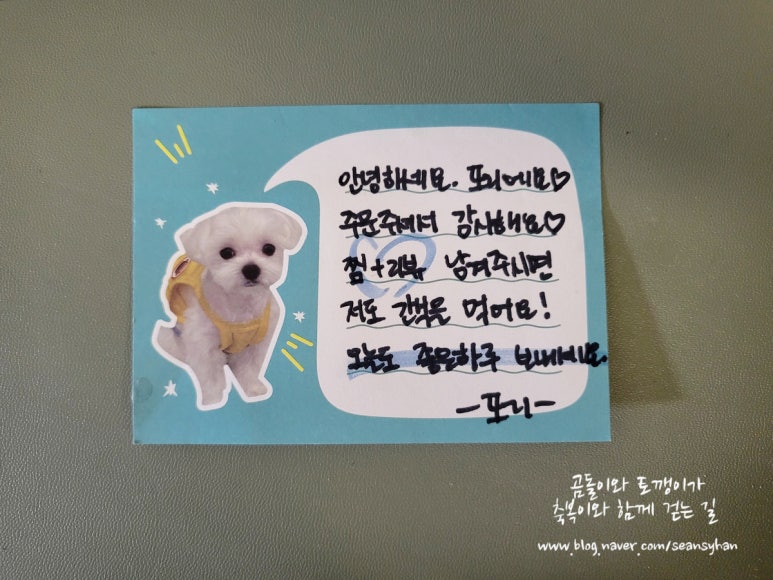 안녕하세요. 포리에요♡
주문주셔서 감사해요♡
찜+리뷰 남겨주시면
저도 간식을 먹어요!
오늘도 좋은하루 보내세요.
-포리-
곰돌이와 토깽이가
축복이와 함께 걷는 길
www.blog.naver.com/seansyhan